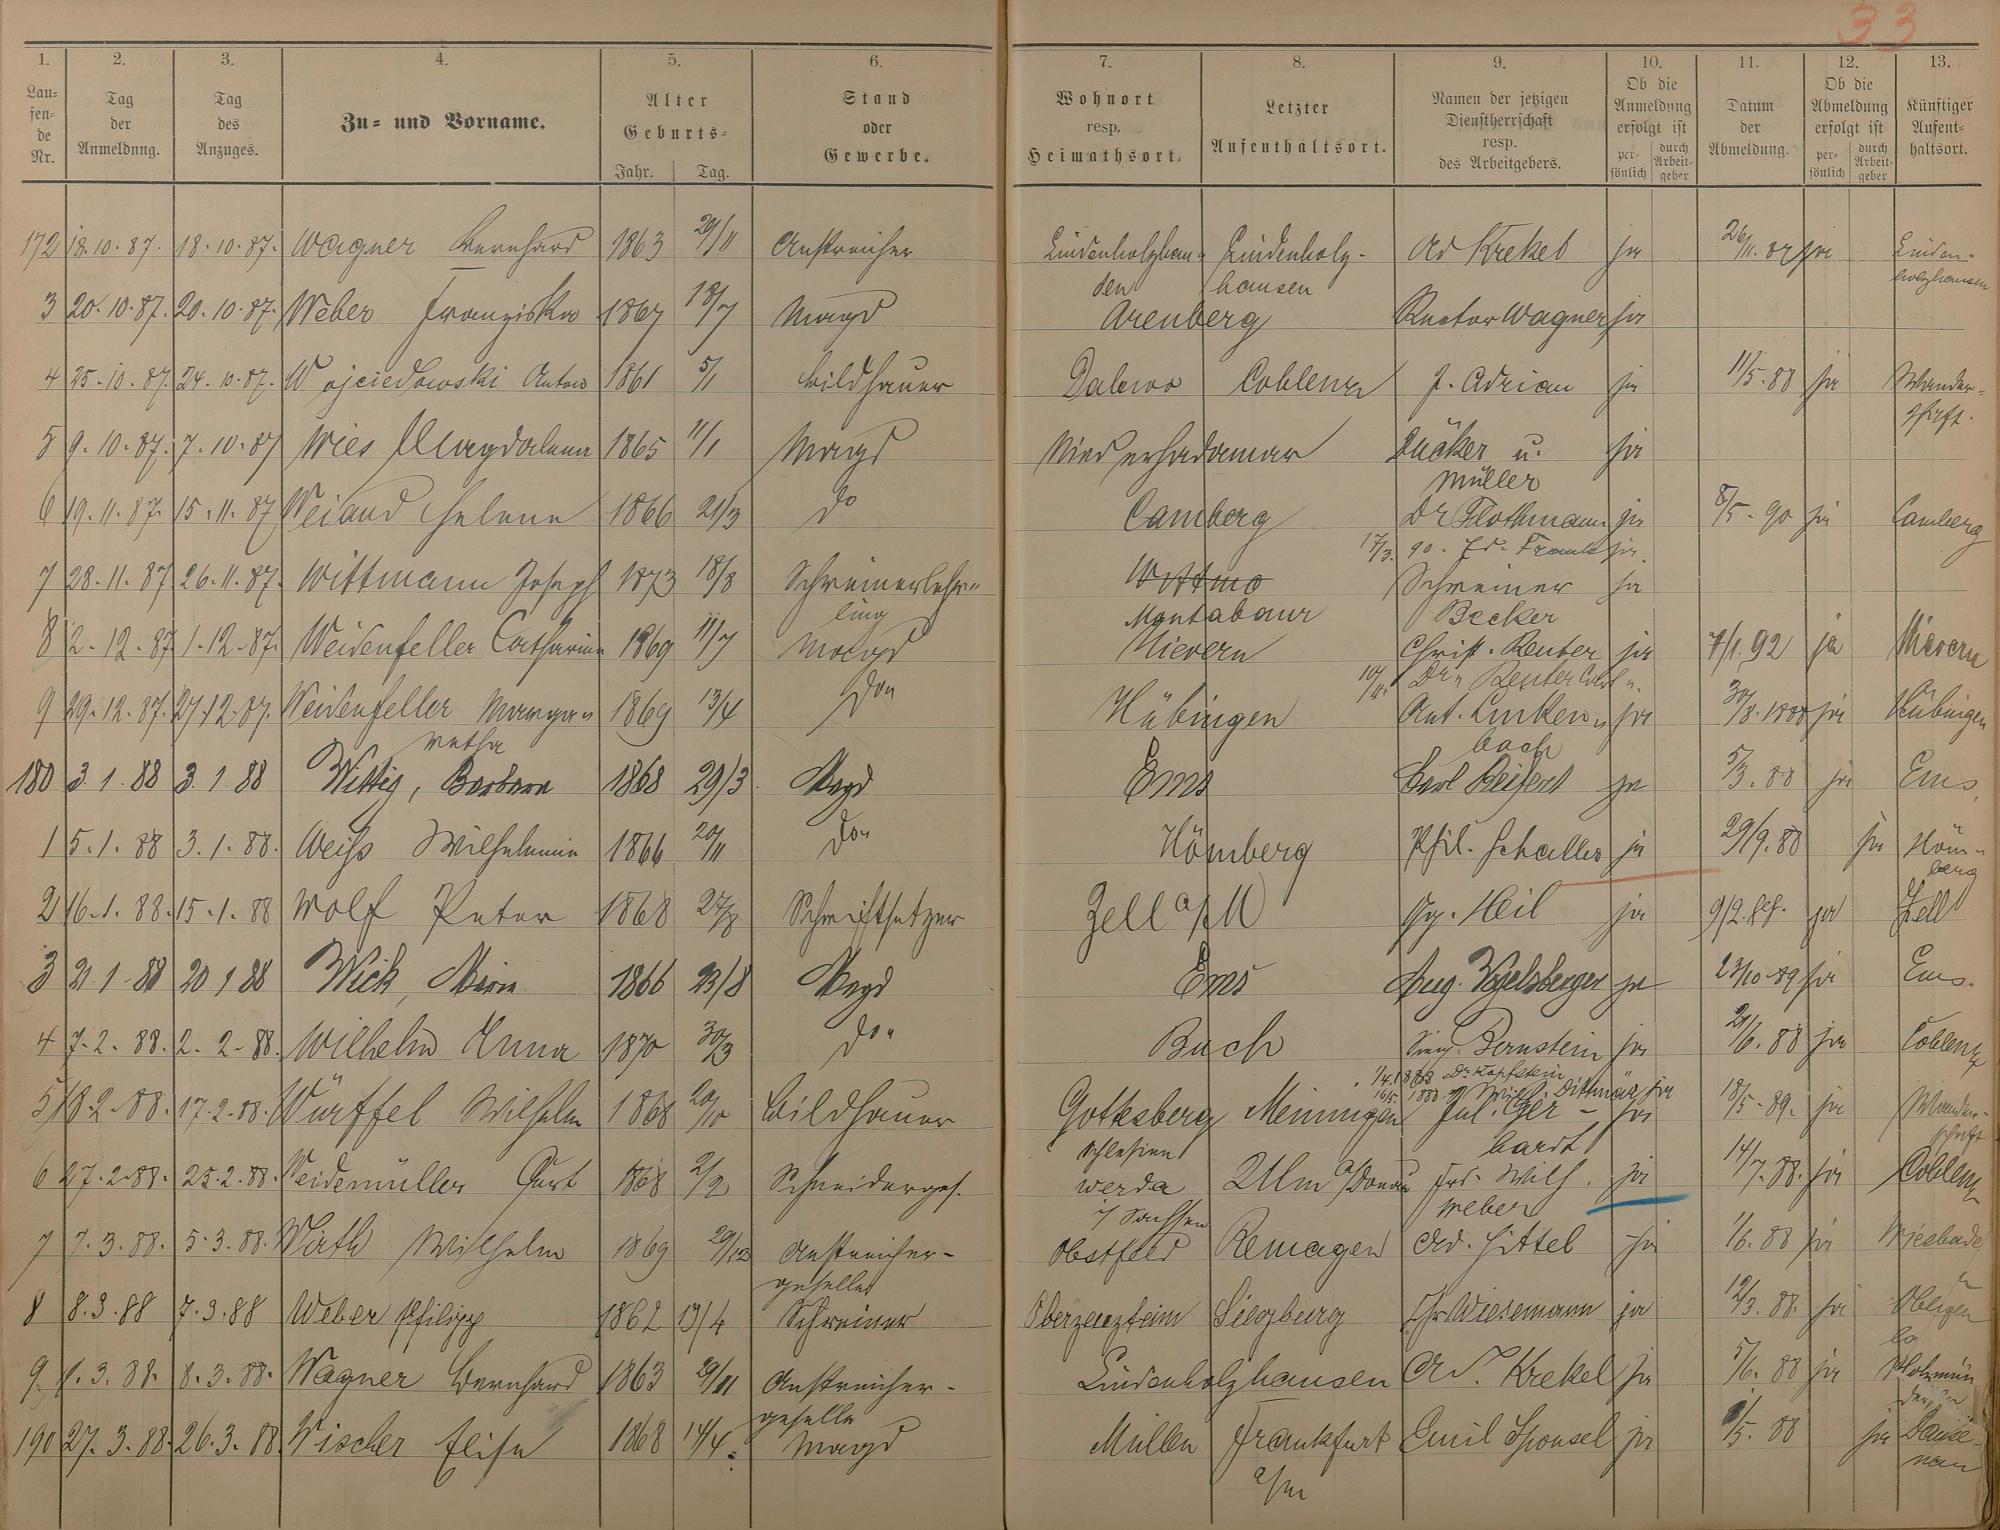 33
1. 2. 3. 4. 5. 6. 7. 8. 9. 10. 11. 12. 13.
Lau=fen=de Nr. Tag der Anmeldung. Tag des Anzuges. Zu= und Vorname. Alter Geburts= Jahr. Tag. Stand oder Gewerbe. Wohnort resp. Heimathsort. Letzter Aufenthaltsort. Namen der jetzigen Dienstherrschaft resp. des Arbeitgebers. Ob die Anmeldung erfolgt ist per=sönlich durch Arbeit=geber Datum der Abmeldung. Ob die Abmeldung erfolgt ist per=sönlich durch Arbeit=geber Künftiger Aufent=haltsort.
172 18.10.87. 18.10.87. Wagner Bernhard 1863 29/11 Anstreicher Lindenholzhau- Lindenholz- Ad Krekel ja 26/11.87 ja Linden-
sen hausen holzhausen
3 20.10.87. 20.10.87. Weber Franziska 1867 18/7 Magd Arenberg Rector Wagner ja
4 25.10.87. 24.10.87. Wojciechowski Anton 1861 5/1 Bildhauer Coblenz J. Adrian ja 11/5.88 ja Wander-
schaft.
5 9.10.87. 7.10.87 Wies Magdalena 1865 11/1 Magd Niederhadamar Dücker u. ja
Müller
6 19.11.87. 15.11.87 Weiand Helene 1866 21/3 do Camberg Dr Flothmann ja 8/5.90 ja Camberg
17/3. 90. Fr. Frank ja
7 28.11.87 26.11.87. Wittmann Joseph 1873 18/8 Schreinerlehr- Schreiner ja
ling Montabaur Becker
8 2.12.87. 1.12.87. Weidenfeller Catharina 1869 11/7 Magd Nievern Christ. Reuter ja 7/1.92 ja Nievern
Dr. Reuter
9 29.12.87. 27.12.87. Weidenfeller Marga- 1869 13/4 do Hübingen Ant. Linken- ja 30/8.1888 ja Hübingen
retha bach
180 3.1.88 3.1.88 Wittig, Barbara 1868 29/3. Magd Ems Carl Seifert ja 5/3.88 ja Ems
1 5.1.88 3.1.88. Weiß Wilhelmine 1866 20/11 do Hömberg Phil. Schaller ja 29/9.88 ja Höm-
berg
2 16.1.88. 15.1.88 Wolf Peter 1868 27/8 Schriftsetzer Zell a/M Gg. Heil ja 9/2.88. ja Zell
3 21.1.88 20.1.88 Wick, Maria 1866 23/8 Magd Ems Aug. Vogelsberger ja 23/10.89 ja Ems.
4 7.2.88. 2.2.88. Wilhelm Anna 1870 30/3 do Buch Bernstein ja 21/6.88 ja Coblenz
1/4.1888 Dr Kopfstein
16/5. 1888 Wilh. Dittmar ja
5 18.2.88. 17.2.88. Würffel Wilhelm 1868 20/10 Bildhauer Gottesberg Meiningen Jul. Ger- ja 18/5.89. ja Wander-
Schlesien hardt schaft
6 27.2.88. 25.2.88. Weidemüller Curt 1868 2/2 Schneiderges. werda Ulm a/Donau Frd. Wilh. ja 14/7.88. ja Coblenz
i/Sachsen Weber
7 7.3.88. 5.3.88. Wath Wilhelm 1869 29/12 Anstreicher- Obstfeld Remagen Ad. Hittel ja 1/6.88 ja Wiesbade
geselle n
8 8.3.88 7.3.88 Weber Philipp 1862 13/4 Schreiner Oberzeuzheim Siegburg Chr Wiesemann ja 12/3.88. ja
9 8.3.88. 8.3.88. Wagner Bernhard 1863 29/11 Anstreicher- Lindenholzhausen Ad. Krekel ja 5/6.88 ja Holzmün
geselle den
190 27.3.88. 26.3.88. Wischer Elise 1868 14/4. Magd Müllen Frankfurt Emil Sponsel ja 1/5.88 ja Dause-
a/m nau